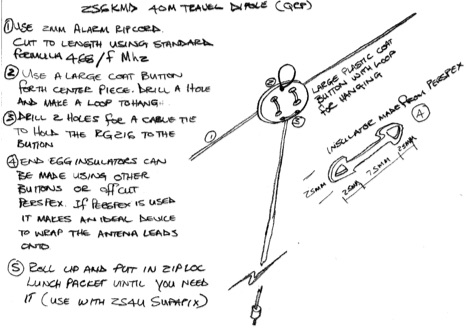 ZS6KMD 40M TRAVEL DIPOLE (QRP)
① USE 2MM ALARM RIPCORD.
CUT TO LENGTH USING STANDARD
FORMULA 468/f Mhz
② USE A LARGE COAT BUTTON
FORTH CENTER PIECE. DRILL A HOLE
AND MAKE A LOOP TO HANG
③ DRILL 2 HOLES FOR A CABLE TIE
TO HOLD THE RG216 TO THE
BUTTON
④ END EGG INSULATORS CAN
BE MADE USING OTHER
BUTTONS OR OFFCUT
PERSPEX. IF PERSPEX IS USED
IT MAKES AN IDEAL DEVICE
TO WRAP THE ANTENA LEADS
ONTO
⑤ ROLL UP AND PUT IN ZIPLOC
LUNCH PACKET UNTIL YOU NEED
IT (USE WITH ZS4U SUPAFIX)
①
②
③
LARGE PLASTIC COAT
BUTTON WITH LOOP
FOR HANGING
INSULATOR MADE FROM PERSPEX
④
25MM
25MM
75MM
25MM